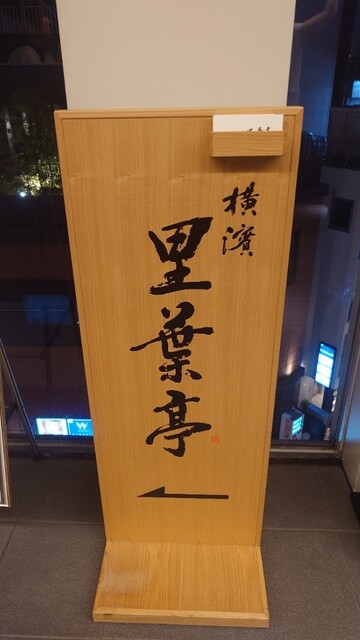 横濱
里葉亭
W